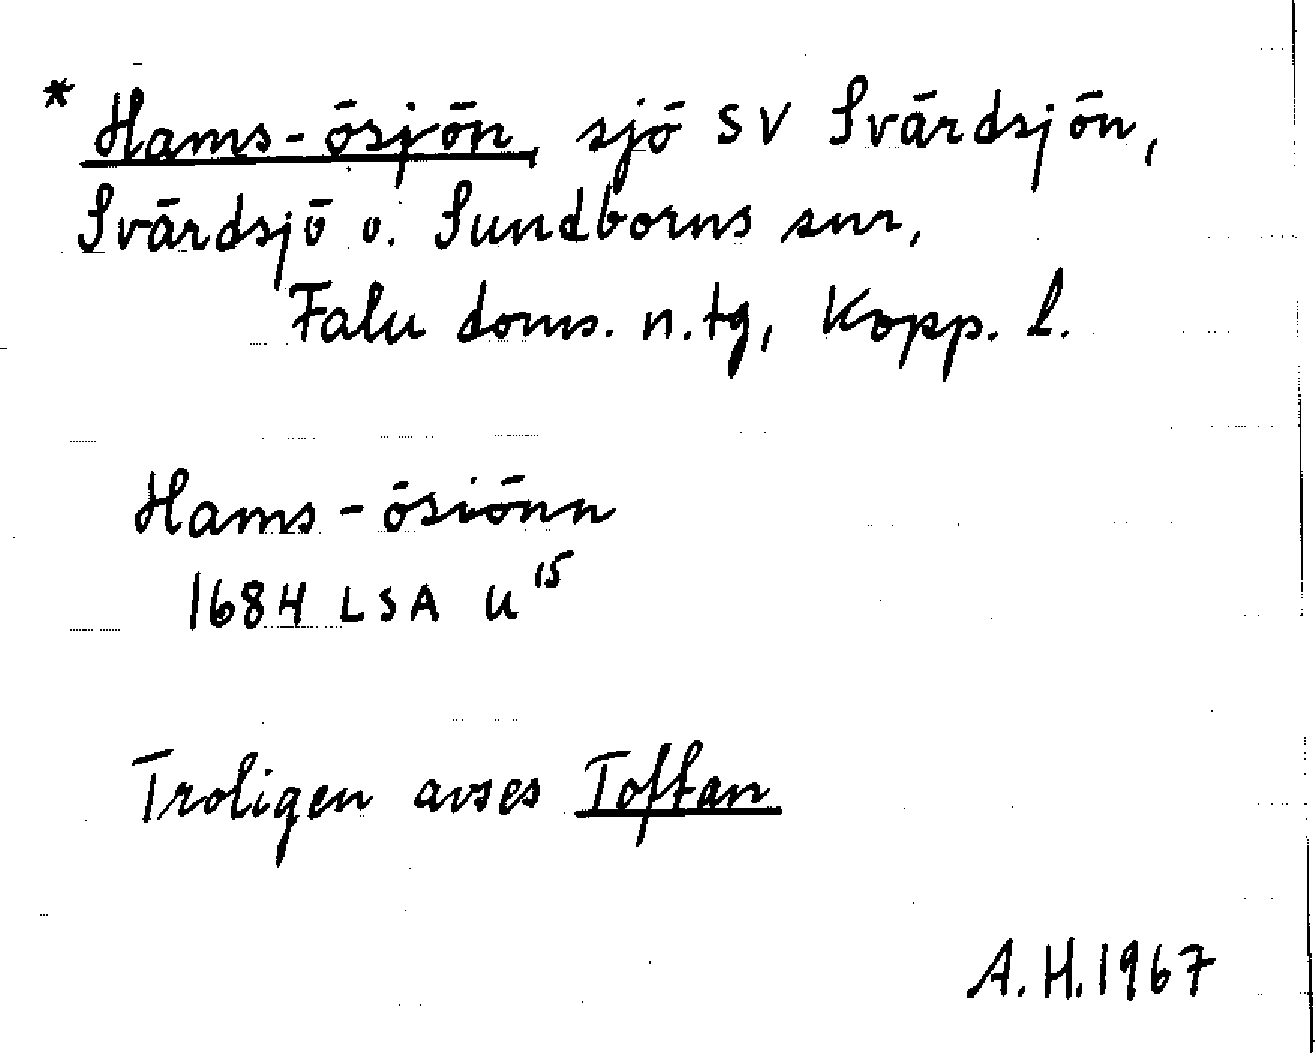 * Hams-ösjön, sjö SV Svärdsjön,
Svärdsjö o. Sundborns snr,
Falu doms. n. tg, Kopp. l.
Hams-ösiönn
1684 LSA U 15
Troligen avses Toftan
A.H. 1967